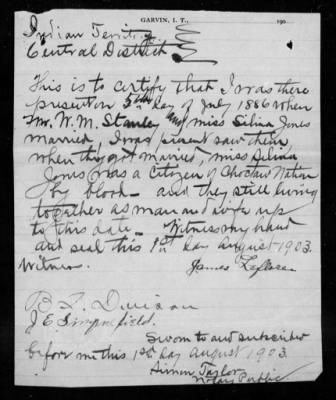 GARVIN, I. T., 190
Indian Territory
Central District
This is to certify that I was there
present on 5th day of July 1886 when
Mr. W. M. Stanley and miss Silina Jones
married, I was present saw them,
when they got married, miss Silina
Jones was a citizen of Choctaw Nation
by blood and they still living
together as man and wife up
to this date. Witness my hand
and seal this 1st day August 1903.
Witness.
James Leflore
B. F.
J E
Sworn to and subscribed
before me this 1st day August 1903.
Simon Taylor
Notary Public